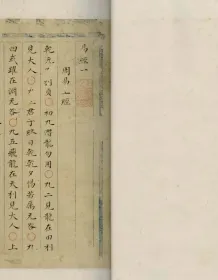 易經一
周易上經
乾元亨利貞○初九潛龍勿用○九二見龍在田利
見大人○九三君子終日乾乾夕惕若厲无咎○九
四或躍在淵无咎○九五飛龍在天利見大人○上